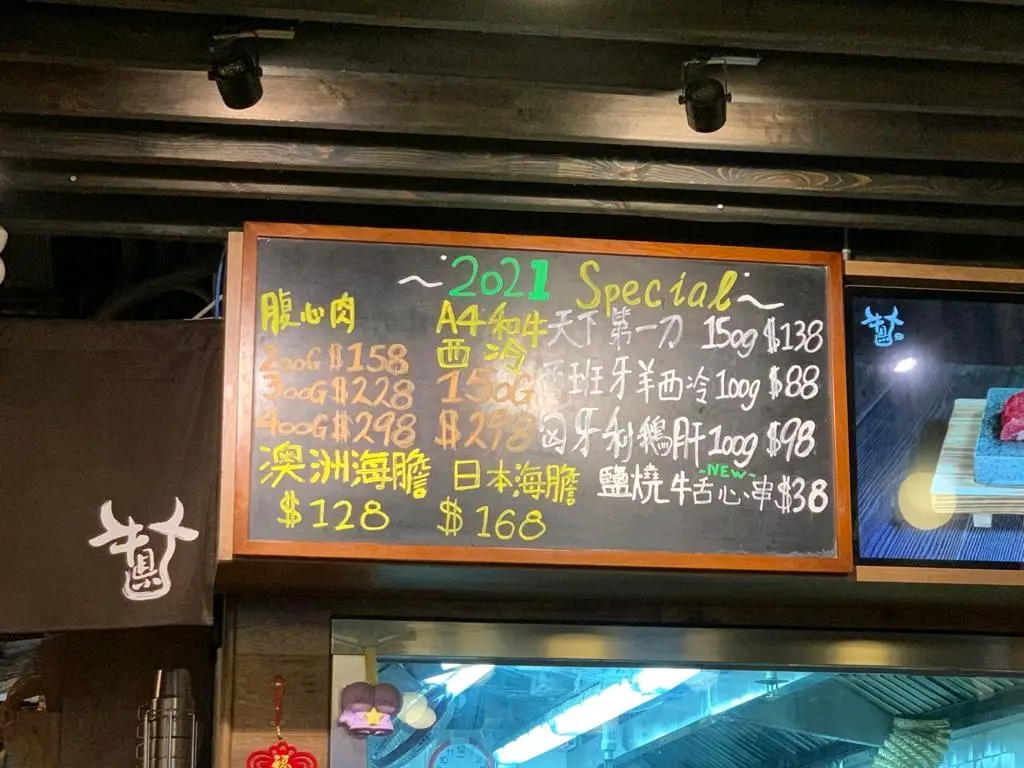 ~2021 Special~
腹心肉
200G $158
300G $228
400G $298
澳洲海膽
$128
A4和牛
西冷
150G
$298
日本海膽
$168
天下第一刀 150g $138
西班牙羊西冷 100g $88
匈牙利鵝肝 100g $98
~NEW~
鹽燒牛舌心串 $38
牛
真
福